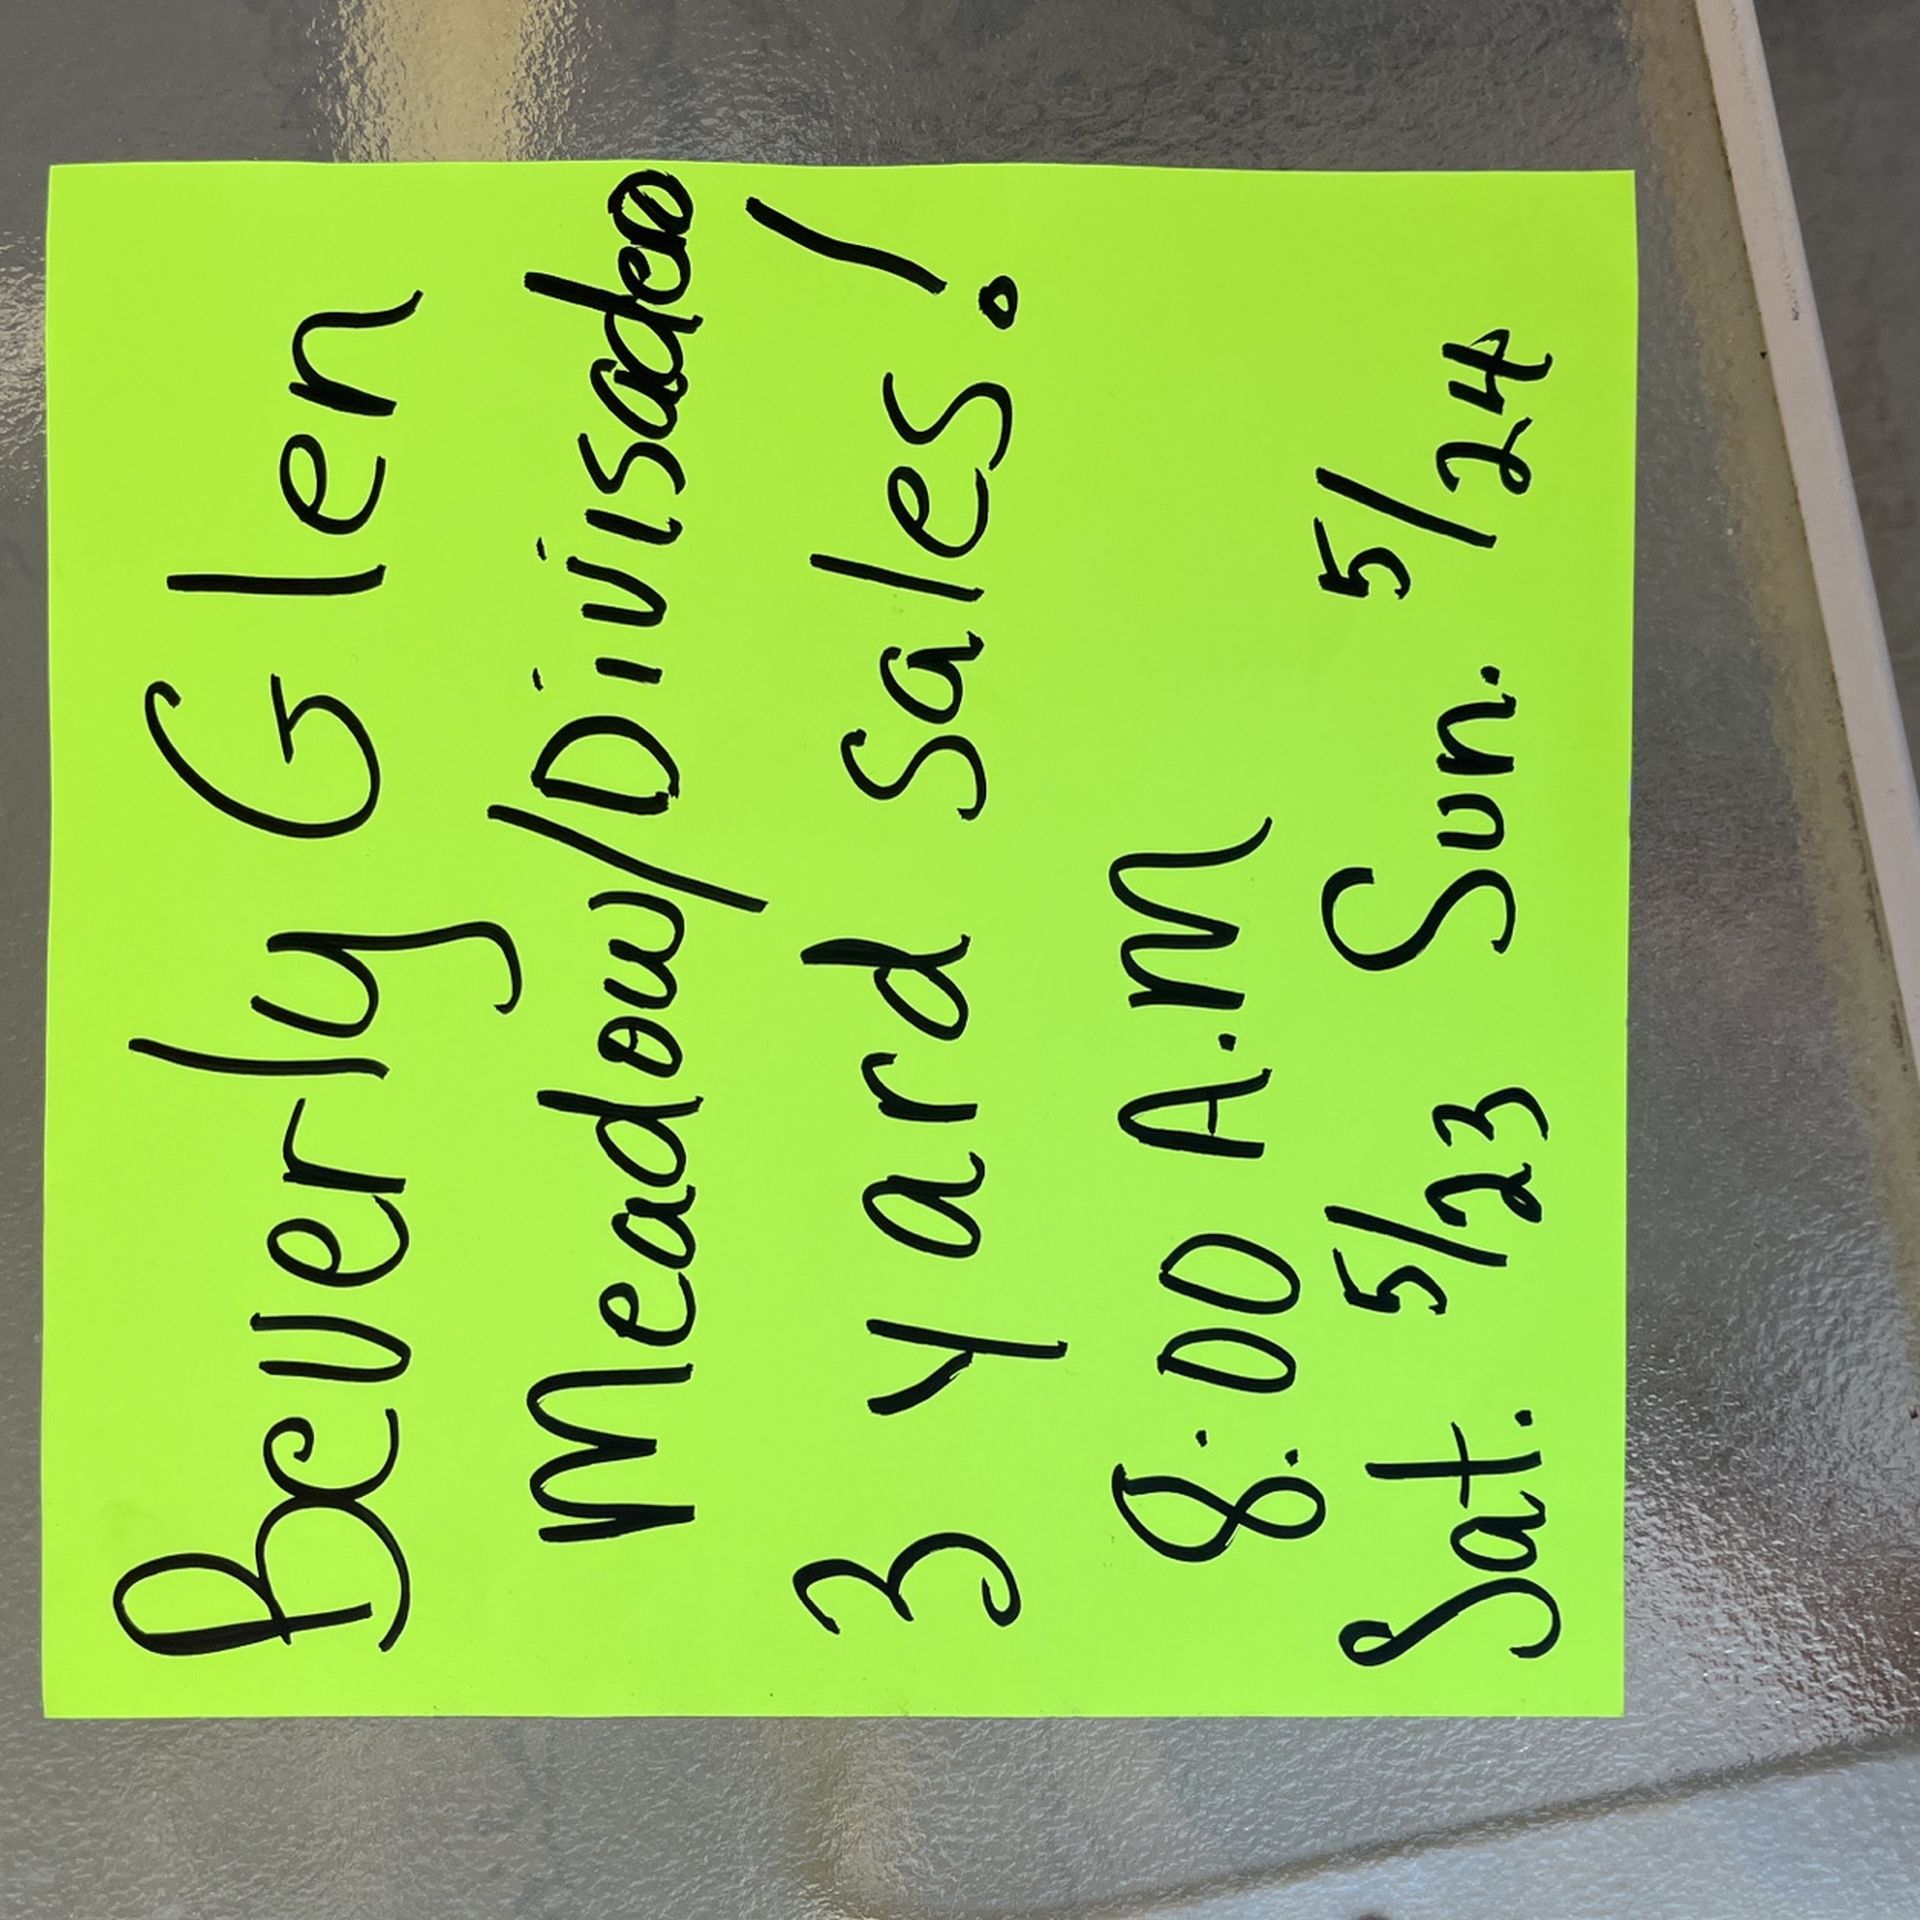 Beverly Glen
Meadow/Divisadero
3 yard sales!
8:00 A.M
Sat. 5/23 Sun. 5/24